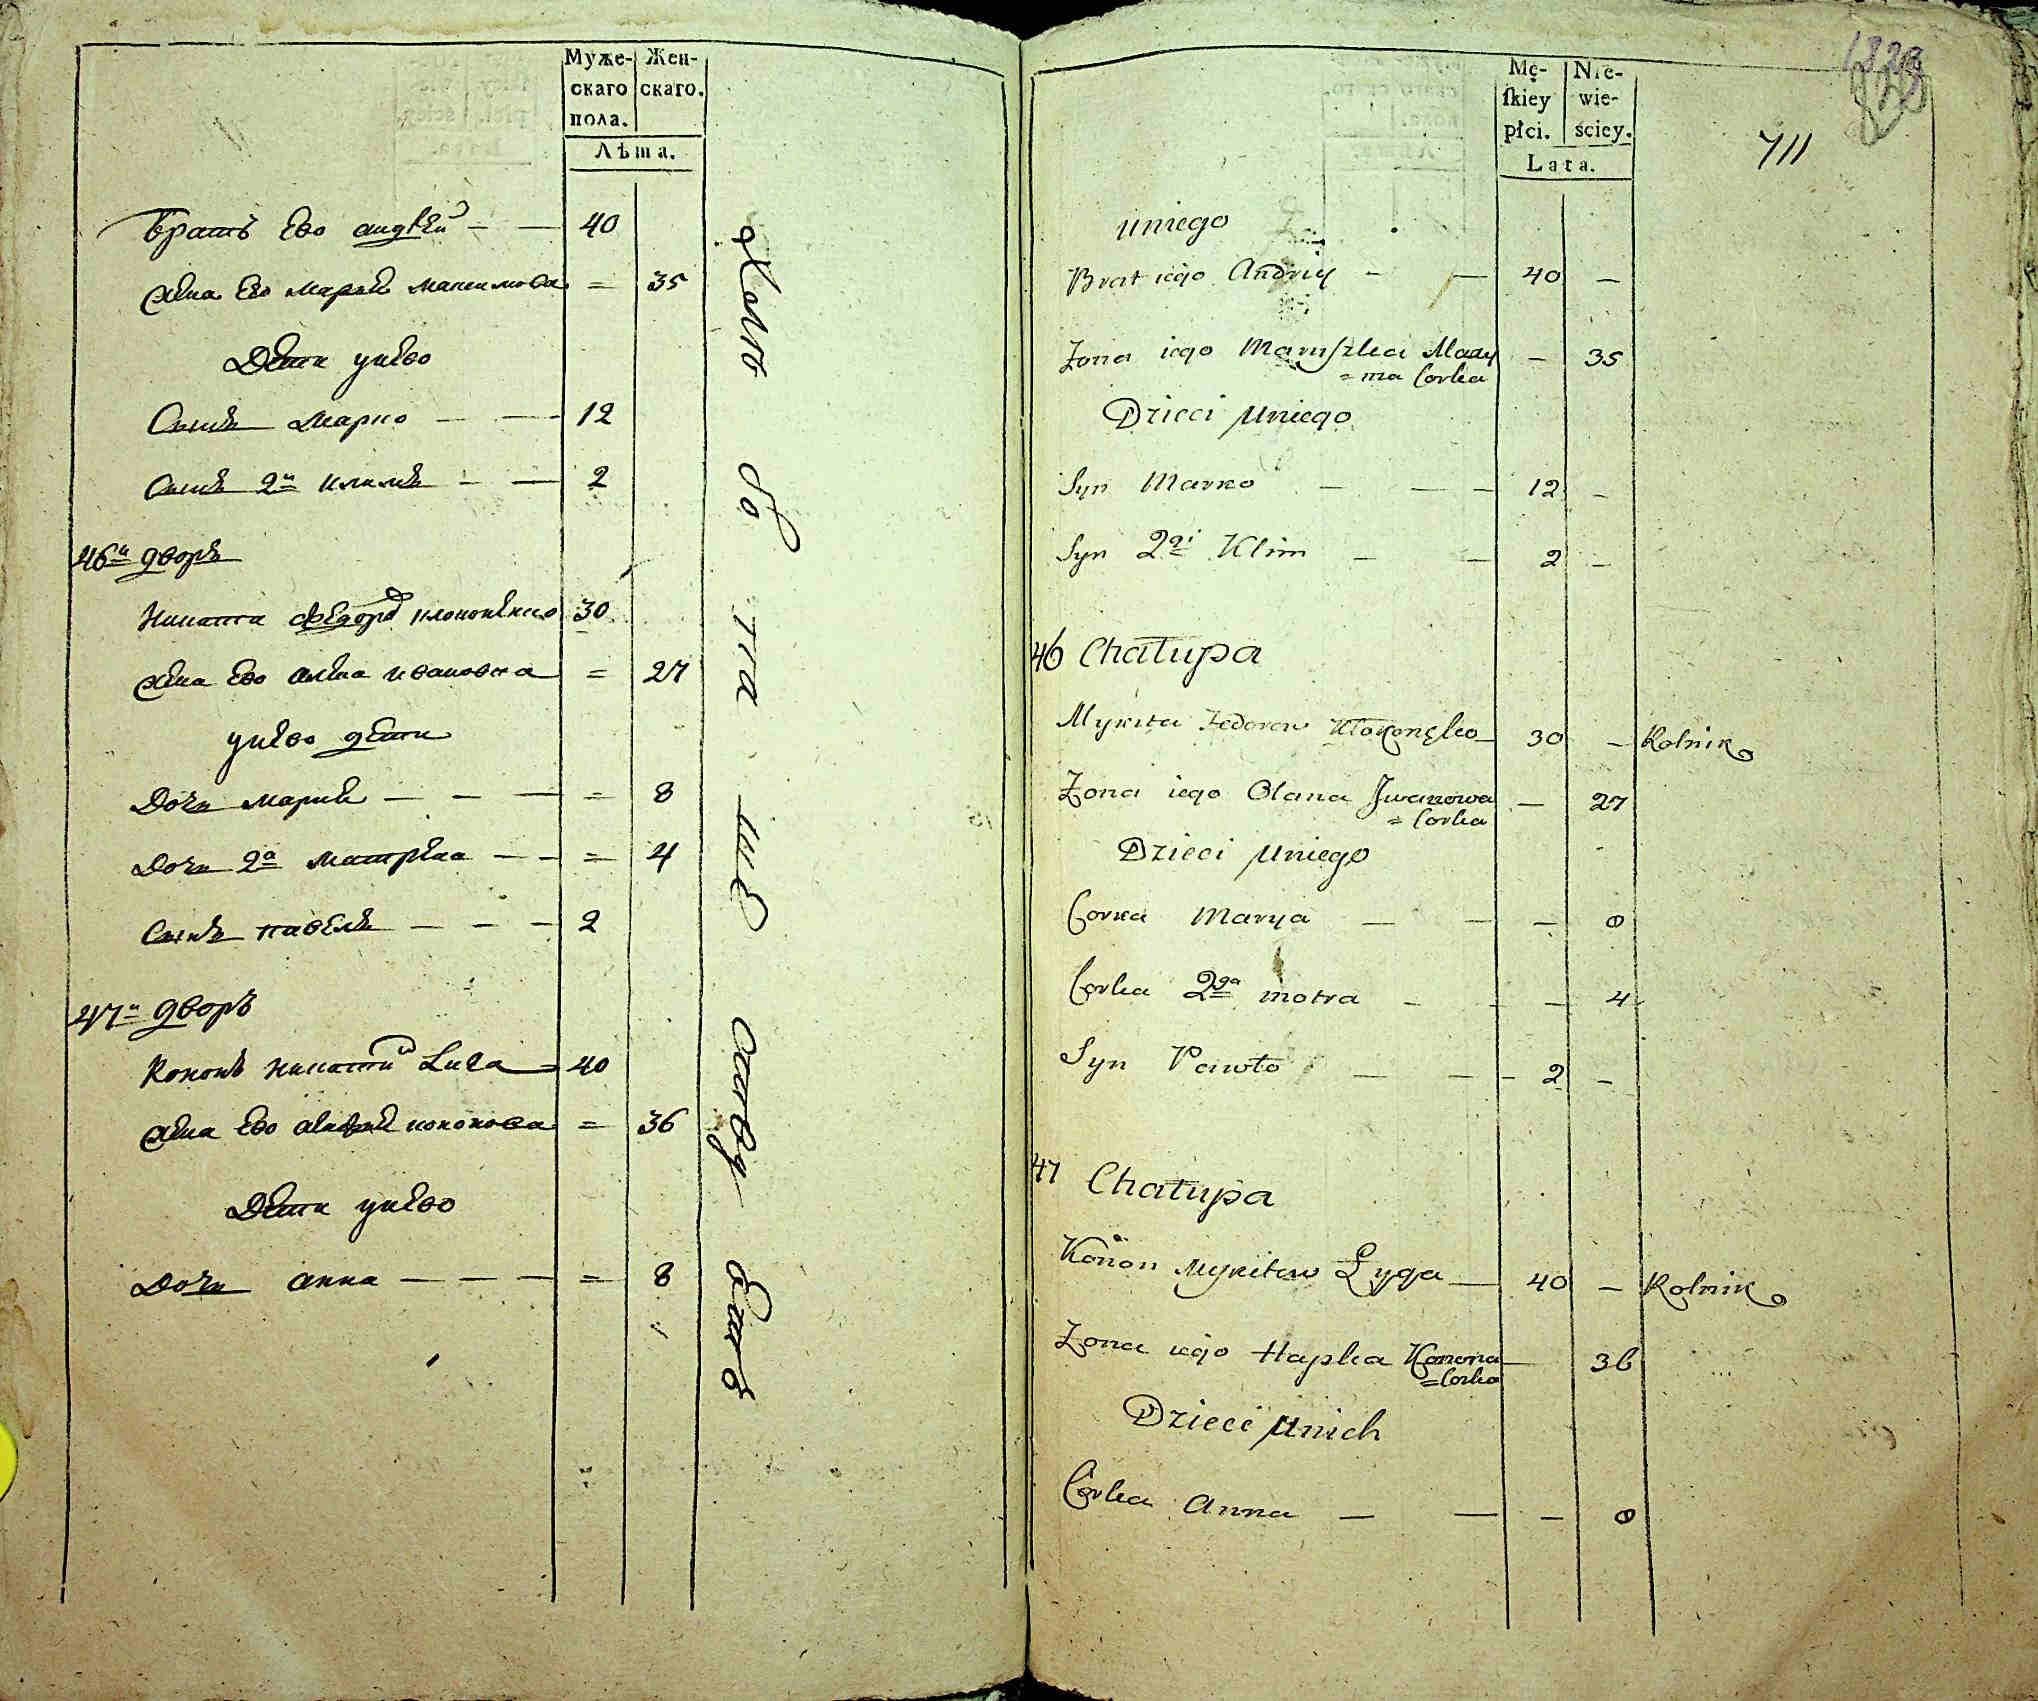 Муже-
скаго
пола.
Жен-
скаго.
Лѣта.
Братъ Ево андрей 40
жена Ево Марья максимова = 35
Дети унево
Сынъ Марко 12
Сынъ 2й климъ 2
46й дворъ
Никита федоровъ клоконенко 30
жена Ево алена ивановна = 27
унево дети
Дочь марья = 8
Дочь 2а Матрена = 4
Сынъ павелъ 2
47й дворъ
Кононъ никитинъ Лига 40
жена Ево кононова = 36
Дети унево
Дочь анна = 8
Mę-
skiey
płci.
Nie-
wie-
sciey.
Lata.
711
uniego
Brat iego Andriy 40
Żona iego Maruszka
= ma Corka 35
Dzieci Uniego
Syn Marko 12
Syn 2gi Klim 2
46 Chałupa
Mykita Fedorow Kłokonęko 30 Rolnik
Żona iego Olana Jwanowa
= Corka 27
Dzieci Uniego
Corka Marya 8
Corka 2ga motra 4
Syn Pawło 2
47 Chałupa
Konon Mykitow Łyga 40 Rolnik
Żona iego Hapka Konona
= Corka 36
Dzieci Unich
Corka Anna 8